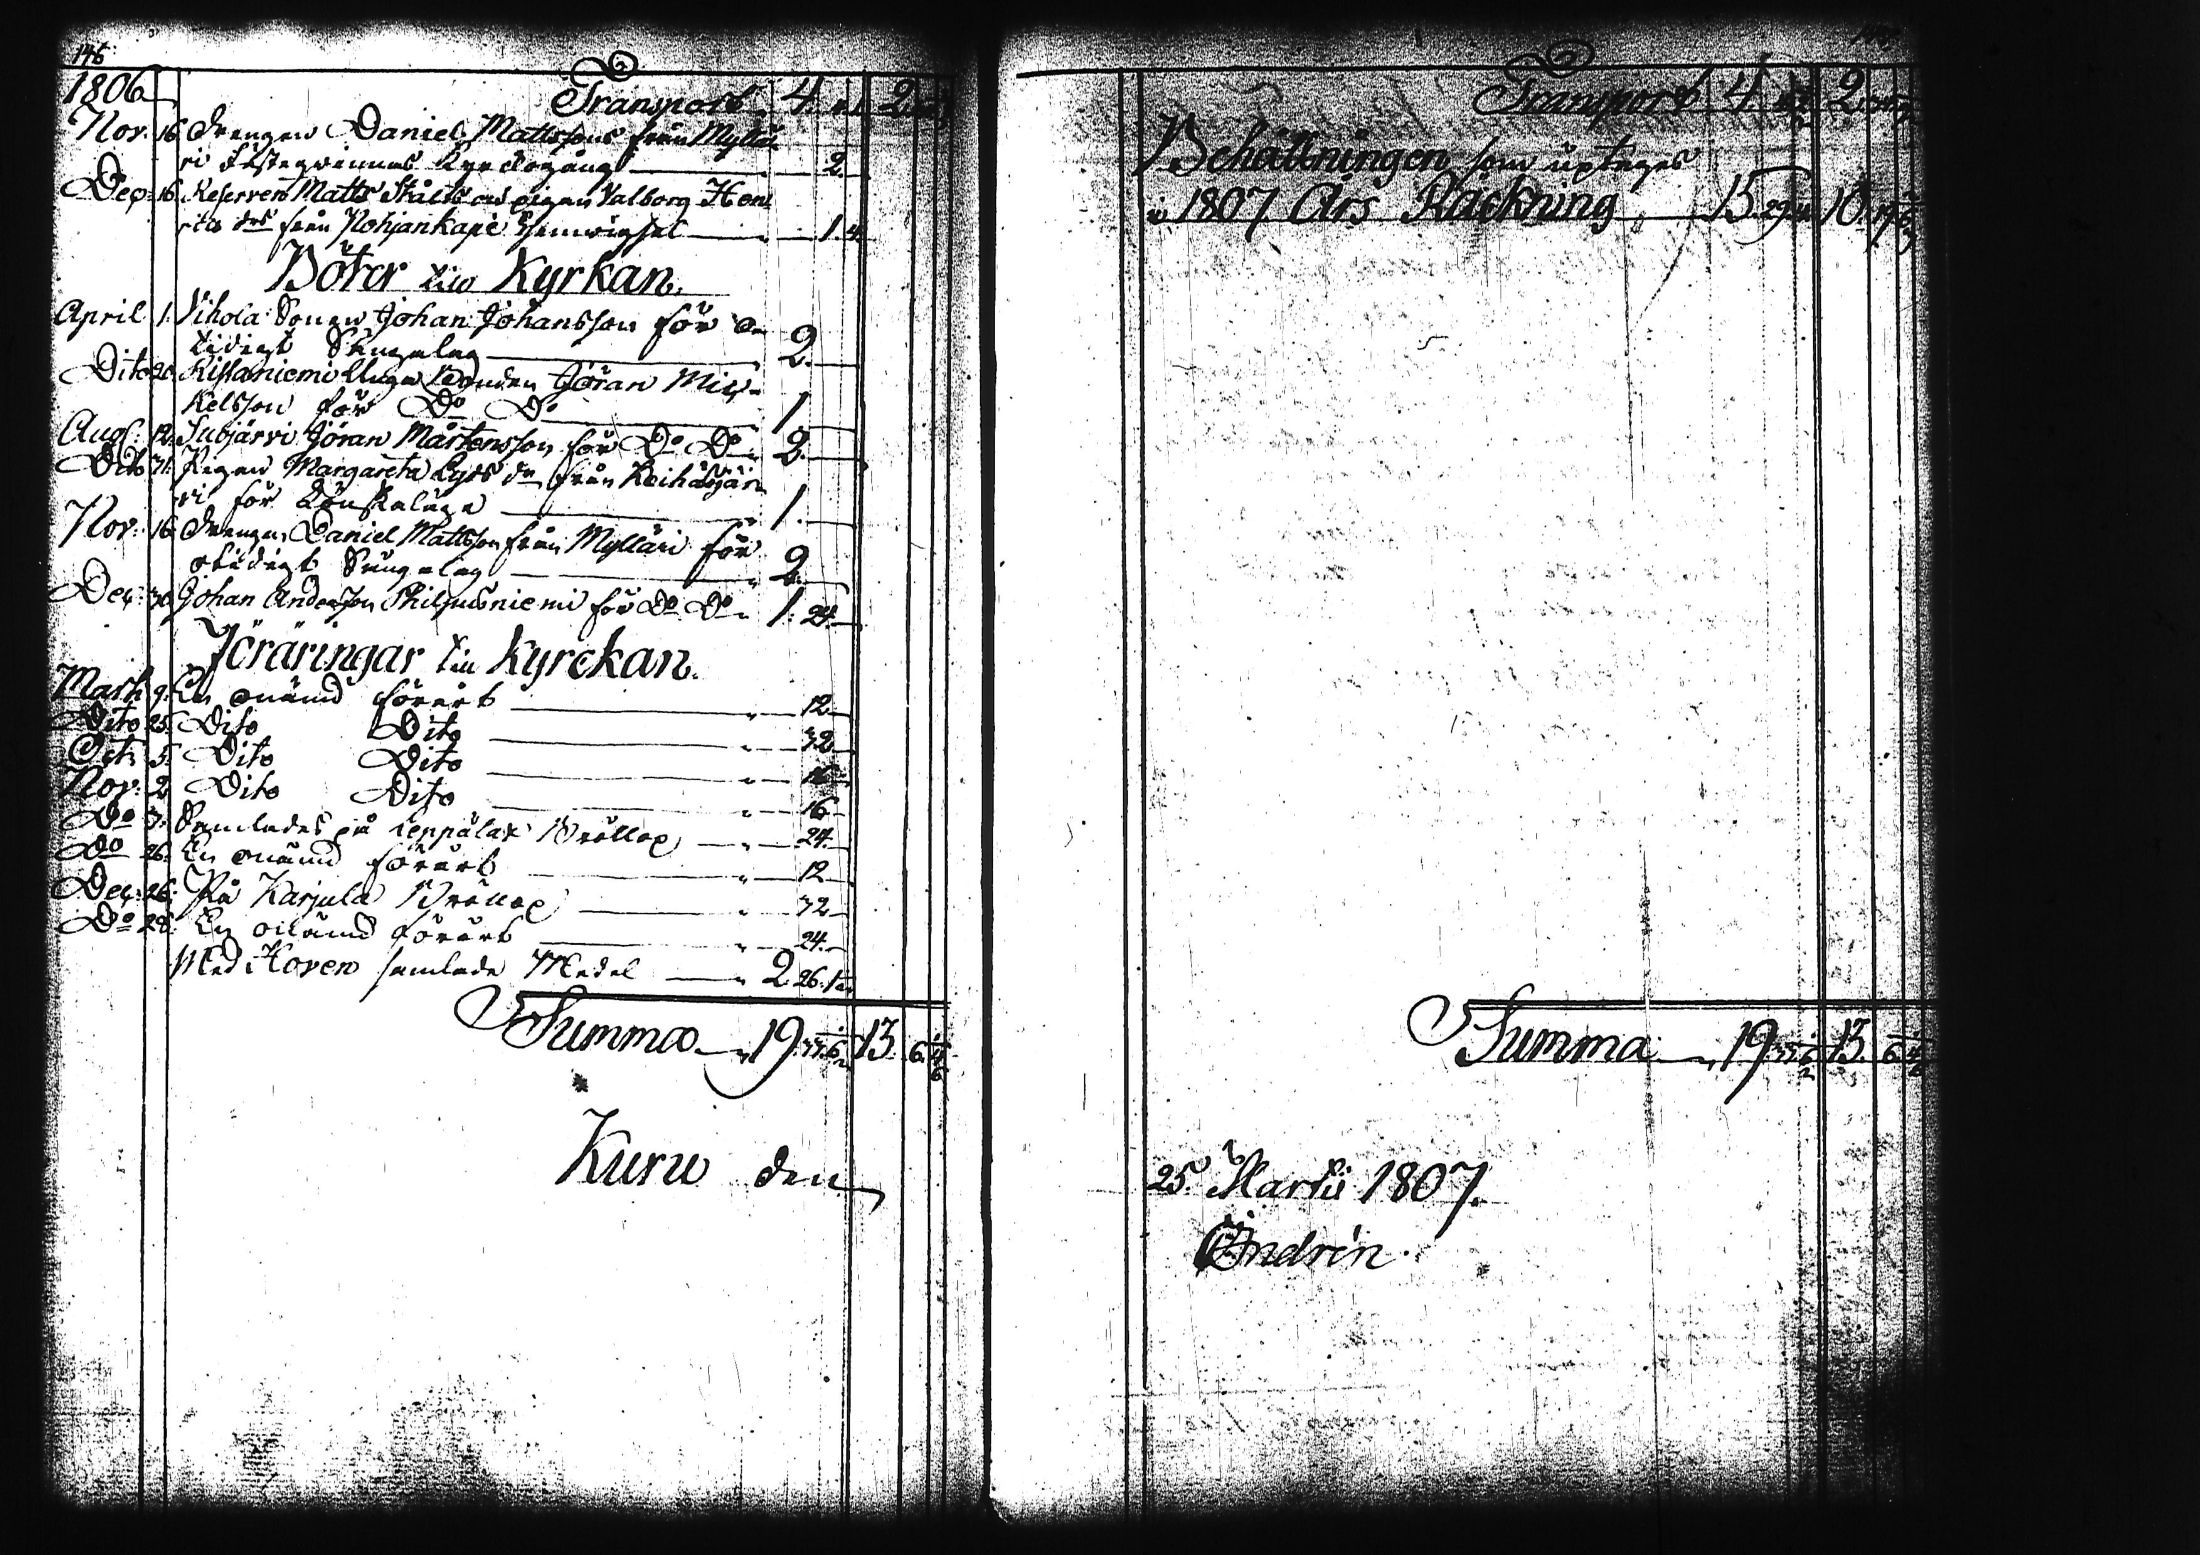 146
1806 Transport 4. 2.
Nov: 16 Drengen Daniel Mattssons från Myllä-
ri Fästeqvinnas Kyrckogång 2.
Dec: 16 Reserven Matts Stålts och pigan Valborg Hen
rics dr från Pohjankapé Hemvigsel 1. 4.
Böter till Kyrkan.
April 1. Vihola Sonen Johan Johansson för o-
tidigt Sängelag 2.
Dito 20 Kissaniemi Unga Bonden Göran Mic-
kelsson för Do Do 1
Aug: 12. Jubjärvi Göran Mårtensson för Do Do 2.
Dito 31. Pigan Margareta Eliæ dr från Keihäsjär
vi för Lönskaläge 1.
Nov: 16 Drengen Daniel Mattsson från Mylläri för
otidigt Sängelag 2.
Dec: 30 Johan Andersson Philpusniemi för Do Do 1. 24.
Föräringar till Kyrckan.
Mart: 9. En onämd förärt 12
Dito 25. Dito Dito 32
Oct: 5. Dito Dito 16
Nov: 2 Dito Dito 16
Do 3. Samlades på Leppälax Bröllop 24.
Do 26. En onämd förärt 12
Dec: 26. På Karjula Bröllop 32
Do 28. En onämd förärt 24.
Med Håven samlade Medel 2 26. 1
Summa 19. 13. 6.
Kuru den
Transport 4. 2.
Behållningen som uptages
i 1807 Års Räckning 15. 29. 10. 19.
Summa 19. 13. 6.
25. Martii 1807.
Öndrén.